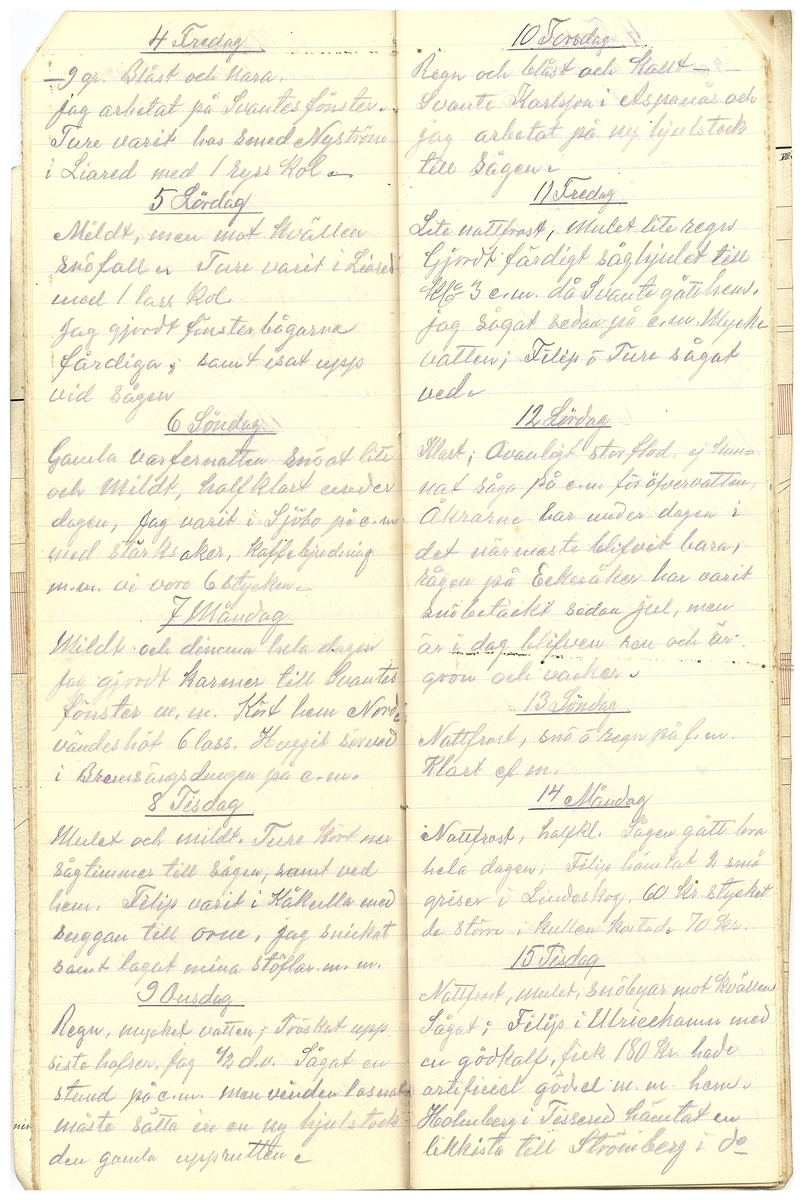 4 Fredag
–9 gr. Blåst och klara.
jag arbetat på Svantes fönster.
Ture varit hos smed Nyström
i Liared med 1 ryss kol.
5 Lördag
Mildt, men mot kvällen
snöfall. Ture varit i Liared
med 1 lass kol.
jag gjordt fönsterbågarne
färdiga, samt isat upp
vid sågen
6 Söndag
Gamla varfernatten snöat lite
och Mildt, halfklart under
dagen, jag varit i Sjöbo på e.m.
med stärks aker, kaffebjudning
m.m. vi voro 6 stycken.
7 Måndag
Mildt och dimma hela dagen
jag gjordt karmer till Svantes
fönster m.m. Kört hem
6 lass. Huggit
i på e.m.
8 Tisdag
Mulet och mildt. Ture kört ner
sågtimmer till sågen, samt ved
hem. Filip varit i Kåkulla med
suggan till orne, jag snickat
samt lagat mina stöflar m.m.
9 Onsdag
Regn, mycket vatten; Tröskat upp
sista hafren, jag 1/2 d.v. Sågat en
stund på e.m. men vinden lasnat
måste sätta in en ny hjulstock
den gamla uppruttten
10 Torsdag
Regn och blåst och kallt –
Svante Karlsson i Aspanäs och
jag arbetat på ny hjulstock
till sågen.
11 Fredag
Lite nattfrost, Mulet lite regn
Gjordt färdigt såghjulet till
kl. 3 e.m. då Svante gått hem.
jag sågat sedan på e.m. Mycke
vatten; Filip o Ture sågat
ved.
12 Lördag
Klart; Ovanligt storflod, ej hun-
nat såga på e.m. för öfvervatten,
Åkrarne har under dagen i
det närmaste blifvit bara,
Rågen på Ekeråker har varit
snöbetäckt sedan jul, men
är i dag blifven ren och är
grön och vacker.
13 Söndag
Nattfrost, snö o regn på f.m.
Klart ef m.
14 Måndag
Nattfrost, halfkl. Sågen gått bra
hela dagen; Filip hämtat 2 små
griser i Lindeskog, 60 kr stycket
de större i kullen kostade 70 kr.
15 Tisdag
Nattfrost, mulet, snöbyar mot kvällen
Sågat; Filip i Ulricehamn med
en gödkalf, fick 180 kr hade
artificiel gödsel m.m. hem.
Holmberg i Tissered hämtat en
likkista till Strömberg i do